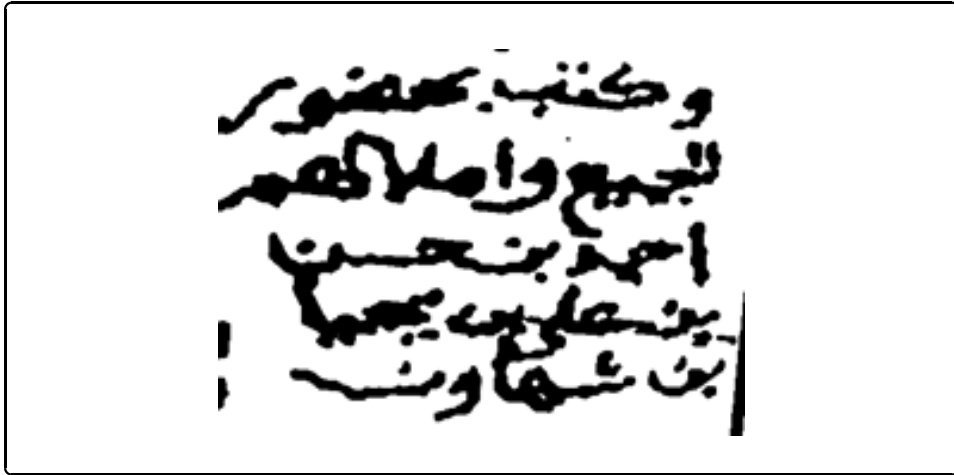 وكتب بحضور
الجميع واملاكهم
احمد بن حسن
بن علي بن يحيا
بن شهاون